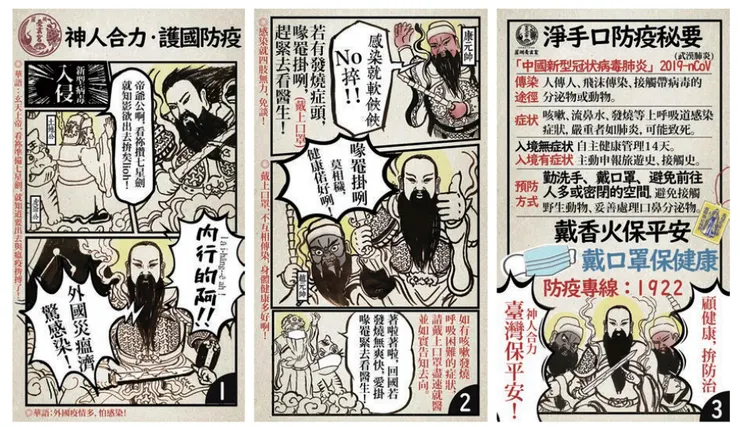 神人合力·護國防疫
新型病毒
入侵
帝爺公啊,看祢攢七星劍
就知影欲出去拚矣honnh!
◎華語:玄天上帝,看祢準備七星劍,就知道要出去與瘟疫拚搏了!
內行的阿!!
外國災瘟濟
驚感染!
◎華語:外國疫情多,怕感染!
1
◎感染就四肢無力,免談!
若有發燒症頭,
喙罨掛咧,(戴上口罩)
趕緊去看醫生!
感染就軟
No捽!!
康元帥
喙罨掛咧,
莫相穢,
健康偌好咧!
◎戴上口罩,不互相傳染,身體健康多好啊!
如有咳嗽發燒
呼吸困難的症狀
請戴上口罩盡速就醫
並如實告知去向。
著啦著啦,回國若
發燒無爽快,愛掛
喙罨緊去看醫生!
2
淨手口防疫秘要
(武漢肺炎)
「中國新型冠狀病毒肺炎」2019-nCoV
傳染途徑 人傳人、飛沫傳染、接觸帶病毒的
分泌物或動物。
症狀 咳嗽、流鼻水、發燒等上呼吸道感染
症狀,嚴重者如肺炎,可能致死。
入境無症狀 自主健康管理14天。
入境有症狀 主動申報旅遊史、接觸史。
預防方式 勤洗手、戴口罩、避免前往
人多或密閉的空間,避免接觸
野生動物、妥善處理口鼻分泌物。
戴香火保平安
戴口罩保健康
防疫專線:1922
顧健康,拚防治
神人合力
臺灣保平安!
3